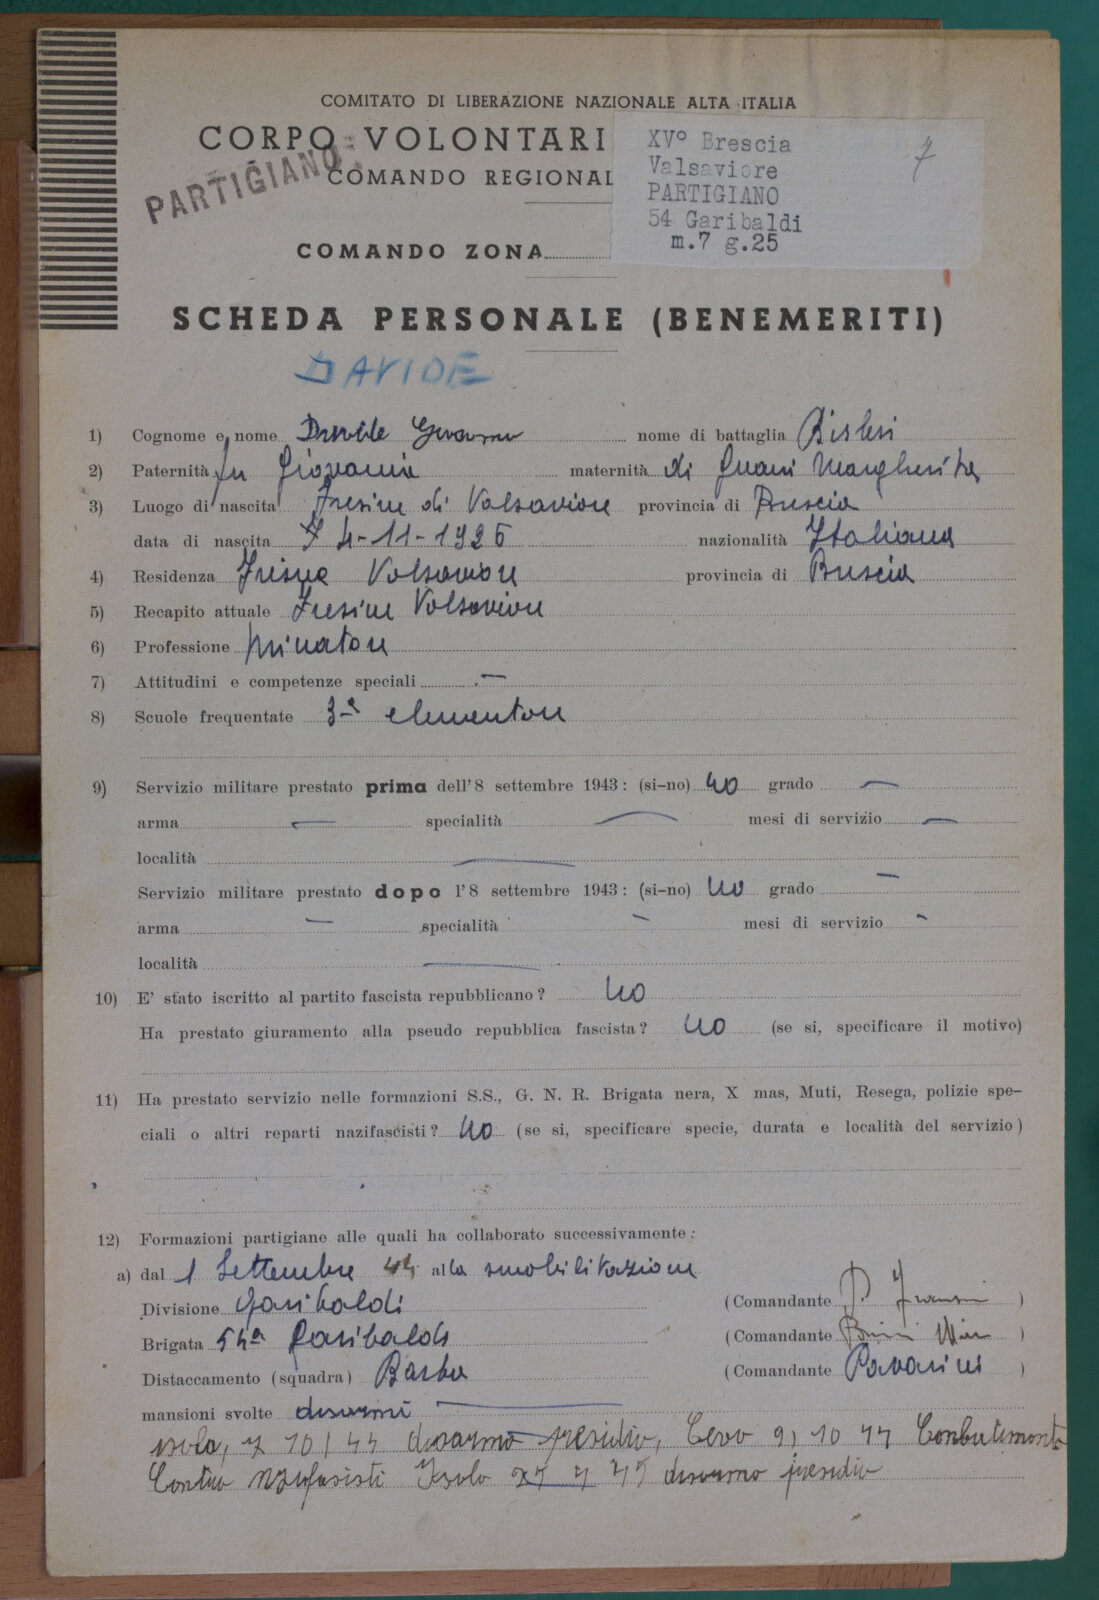 COMITATO DI LIBERAZIONE NAZIONALE ALTA ITALIA
CORPO VOLONTARI
COMANDO REGIONAL
PARTIGIANO
XV° Brescia
Valsaviore
PARTIGIANO
54 Garibaldi
m.7 g.25
7
COMANDO ZONA
SCHEDA PERSONALE (BENEMERITI)
DAVIDE
1) Cognome e nome Davide nome di battaglia Bisleri
2) Paternità fu Giovanni maternità di Margherita
3) Luogo di nascita Fresine di Valsaviore provincia di Brescia
data di nascita 4-11-1926 nazionalità Italiana
4) Residenza Fresine Valsaviore provincia di Brescia
5) Recapito attuale Fresine Valsaviore
6) Professione Minatore
7) Attitudini e competenze speciali —
8) Scuole frequentate 3ª elementare
9) Servizio militare prestato prima dell'8 settembre 1943: (si-no) no grado —
arma — specialità — mesi di servizio —
località —
Servizio militare prestato dopo l'8 settembre 1943: (si-no) no grado —
arma — specialità — mesi di servizio -
località —
10) E' stato iscritto al partito fascista repubblicano? no
Ha prestato giuramento alla pseudo repubblica fascista? no (se si, specificare il motivo)
11) Ha prestato servizio nelle formazioni S.S., G. N. R. Brigata nera, X mas, Muti, Resega, polizie spe-
ciali o altri reparti nazifascisti? no (se si, specificare specie, durata e località del servizio)
12) Formazioni partigiane alle quali ha collaborato successivamente:
a) dal 1 Settembre 44 alla smobilitazione
Divisione Garibaldi (Comandante )
Brigata 54ª Garibaldi (Comandante )
Distaccamento (squadra) Barba (Comandante Pavarini)
mansioni svolte disarmi —
Isola, 7 10/44 disarmo presidio, Cevo 9/10 44 Combattimento
Contro Nazifascisti Isola disarmo presidio